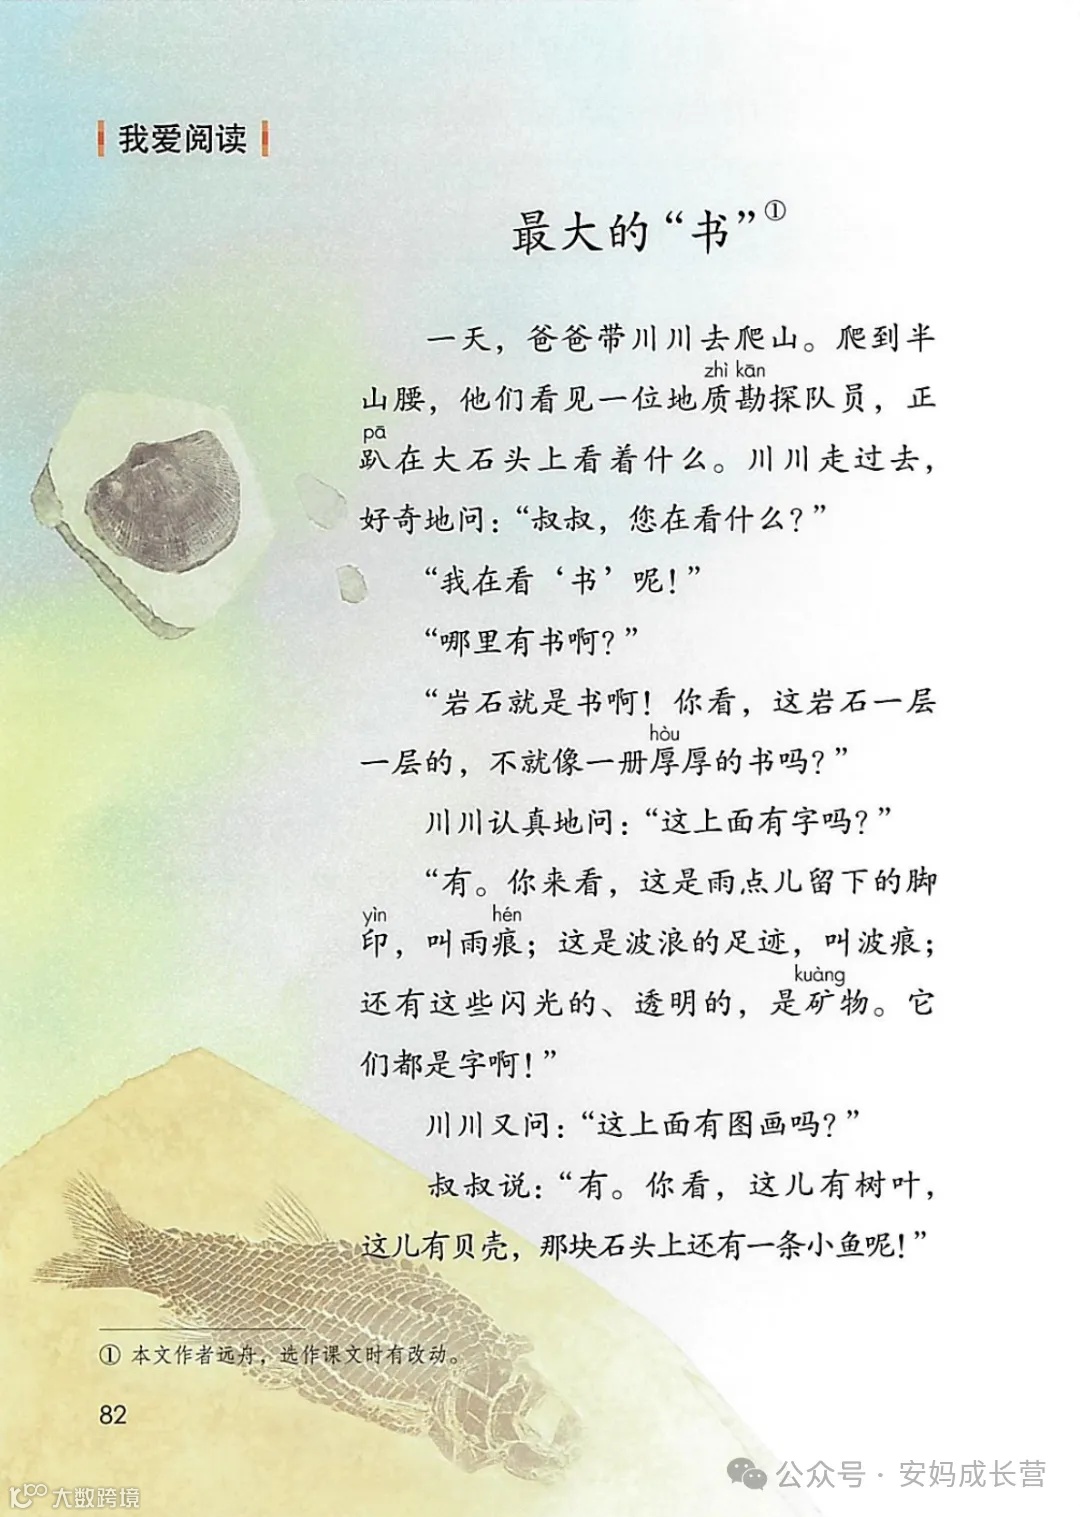 我爱阅读
最大的“书”①
一天，爸爸带川川去爬山。爬到半
zhì kān
山腰，他们看见一位地质勘探队员，正
pā
趴在大石头上看着什么。川川走过去，
好奇地问：“叔叔，您在看什么？”
“我在看‘书’呢！”
“哪里有书啊？”
“岩石就是书啊！你看，这岩石一层
hòu
一层的，不就像一册厚厚的书吗？”
川川认真地问：“这上面有字吗？”
“有。你来看，这是雨点儿留下的脚
yìn hén
印，叫雨痕；这是波浪的足迹，叫波痕；
kuàng
还有这些闪光的、透明的，是矿物。它
们都是字啊！”
川川又问：“这上面有图画吗？”
叔叔说：“有。你看，这儿有树叶，
这儿有贝壳，那块石头上还有一条小鱼呢！”
① 本文作者远舟，选作课文时有改动。
82
公众号·安妈成长营
大数跨境